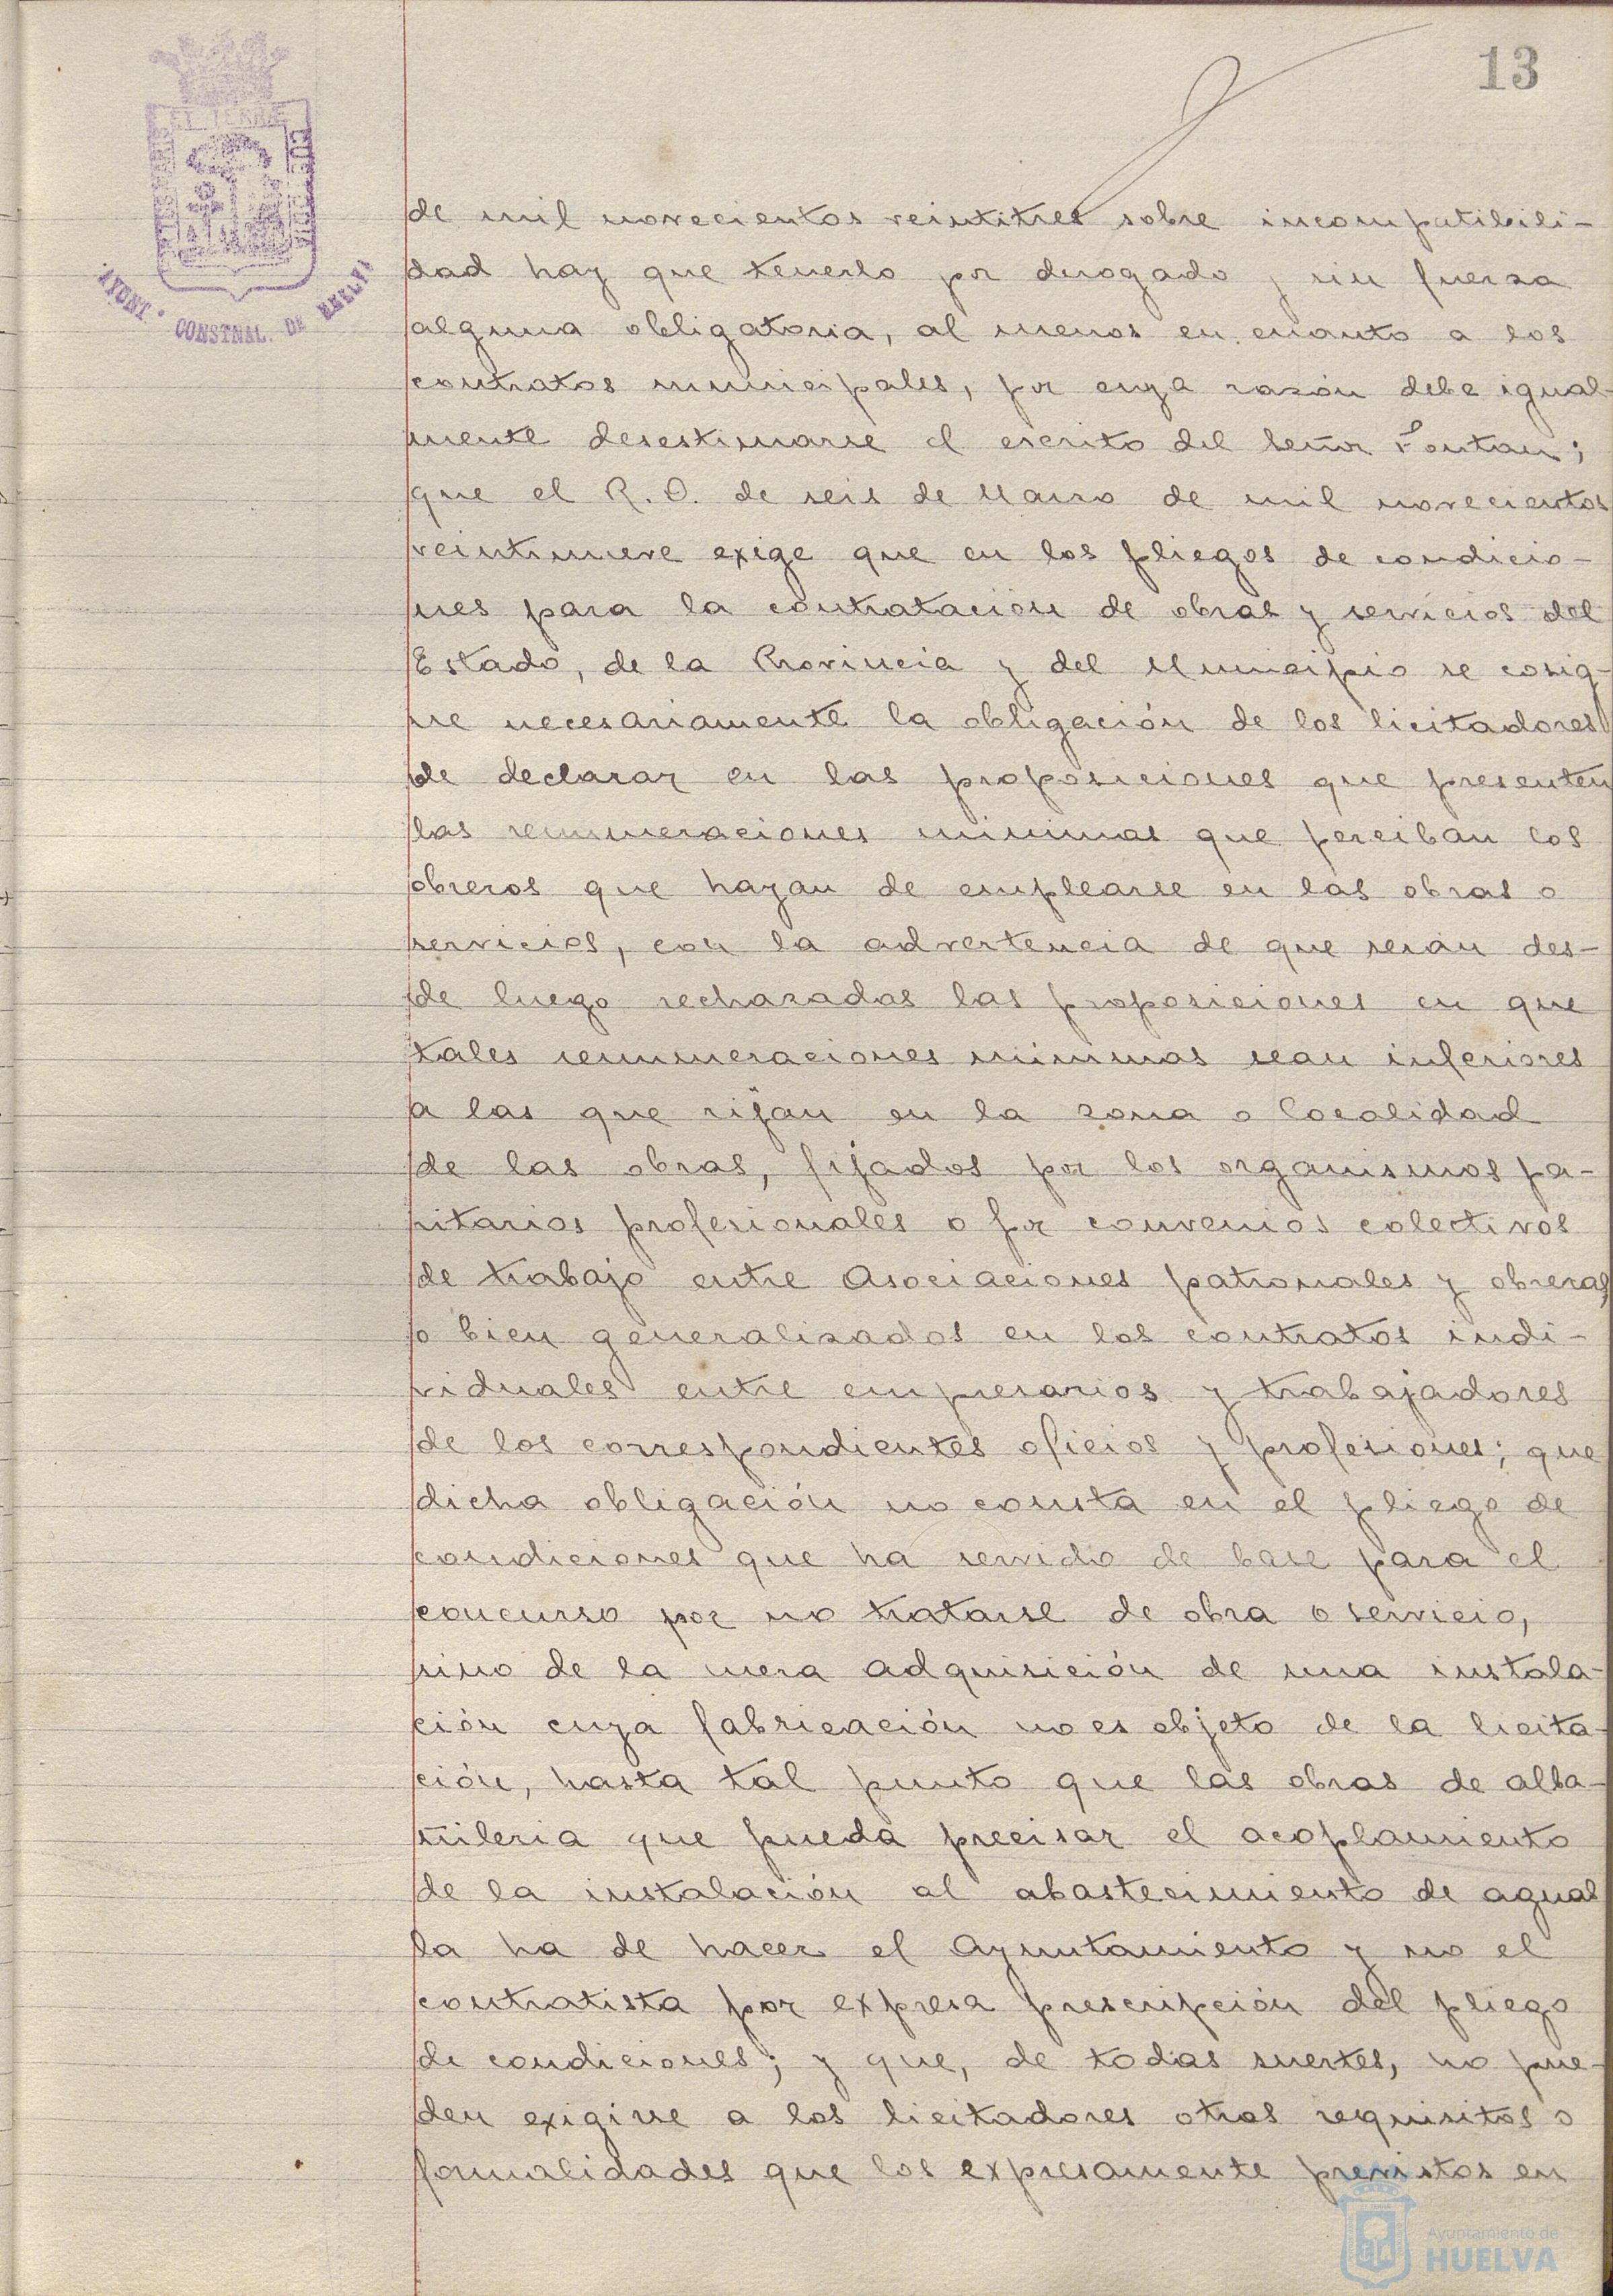 13
ET TERRÆ
AYUNT. CONSTNAL. DE HUELVA
de mil novecientos veintitres sobre incompatibili-
dad hay que tenerlo por derogado y sin fuerza
alguna obligatoria, al menos en cuanto a los
contratos municipales, por cuya razón debe igual-
mente desestimarse el escrito del Señor Fontan;
que el R. O. de seis de Marzo de mil novecientos
veintinueve exige que en los pliegos de condicio-
nes para la contratación de obras y servicios del
Estado, de la Provincia y del Municipio se cosig-
ne necesariamente la obligación de los licitadores
de declarar en las proposiciones que presenten
las remuneraciones minimas que perciban los
obreros que hayan de emplearse en las obras o
servicios, con la advertencia de que serán des-
de luego rechazadas las proposiciones en que
tales remuneraciones minimas sean inferiores
a las que rijan en la zona o localidad
de las obras, fijados por los organismos pa-
ritarios profesionales o por convenios colectivos
de trabajo entre Asociaciones patronales y obreras,
o bien generalizados en los contratos indi-
viduales entre empresarios y trabajadores
de los correspondientes oficios y profesiones; que
dicha obligación no consta en el pliego de
condiciones que ha servido de base para el
concurso por no tratarse de obra o servicio,
sino de la mera adquisición de una instala-
ción cuya fabricación no es objeto de la licita-
ción, hasta tal punto que las obras de alba-
ñileria que pueda precisar el acoplamiento
de la instalación al abastecimiento de aguas
la ha de hacer el Ayuntamiento y no el
contratista por expresa prescripción del pliego
de condiciones; y que, de todas suertes, no pue-
den exigirse a los licitadores otros requisitos o
formalidades que los expresamente previstos en
Ayuntamiento de
HUELVA